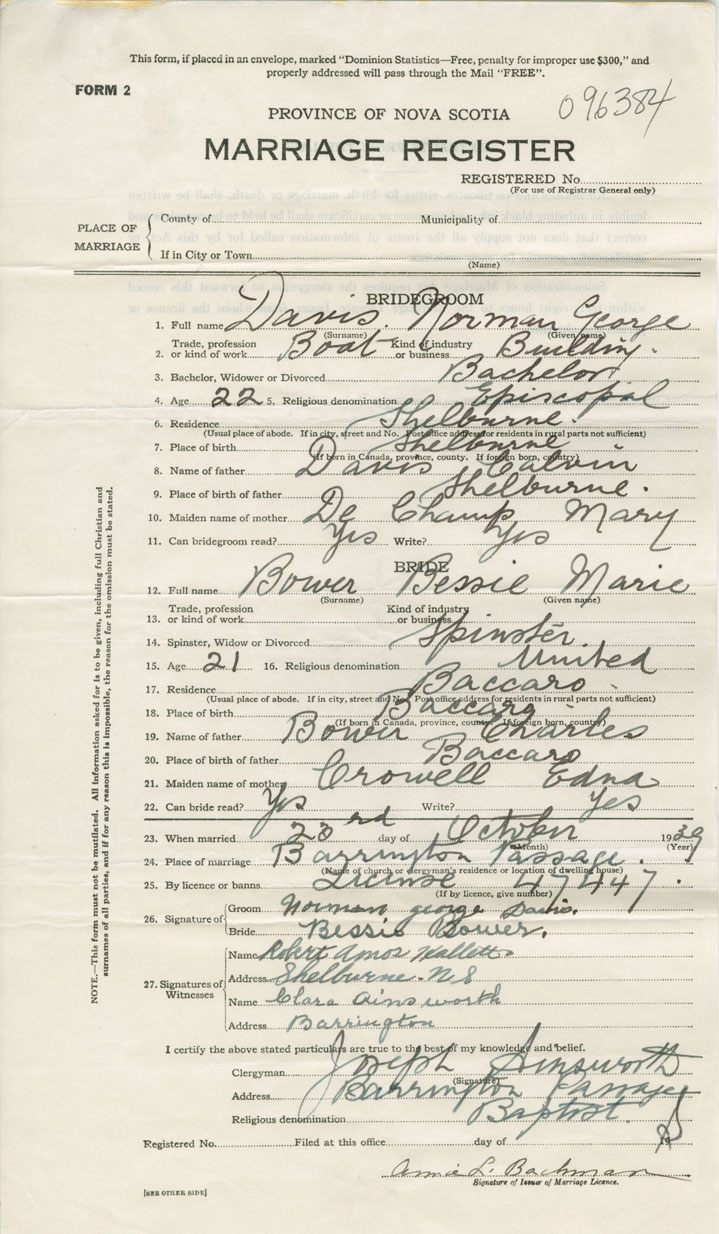 This form, if placed in an envelope, marked "Dominion Statistics—Free, penalty for improper use $300," and
properly addressed will pass through the Mail "FREE".
FORM 2
096384
PROVINCE OF NOVA SCOTIA
MARRIAGE REGISTER
REGISTERED No.
(For use of Registrar General only)
PLACE OF MARRIAGE
County of Municipality of
If in City or Town
(Name)
BRIDEGROOM
1. Full name Davis. Norman George
(Surname) (Given name)
2. Trade, profession or kind of work Boat Kind of industry or business Building.
3. Bachelor, Widower or Divorced Bachelor
4. Age 22 5. Religious denomination Episcopal
6. Residence Shelburne.
(Usual place of abode. If in city, street and No. Post office address for residents in rural parts not sufficient)
7. Place of birth Shelburne
(If born in Canada, province, county. If foreign born, country)
8. Name of father Davis Calvin
9. Place of birth of father Shelburne.
10. Maiden name of mother De Champ Mary
11. Can bridegroom read? Yes Write? Yes
BRIDE
12. Full name Bower Bessie Marie
(Surname) (Given name)
13. Trade, profession or kind of work Kind of industry or business
14. Spinster, Widow or Divorced Spinster
15. Age 21 16. Religious denomination United
17. Residence Baccaro
(Usual place of abode. If in city, street and No. Post office address for residents in rural parts not sufficient)
18. Place of birth Baccaro
(If born in Canada, province, county. If foreign born, country)
19. Name of father Bower Charles
20. Place of birth of father Baccaro
21. Maiden name of mother Crowell Edna
22. Can bride read? Yes Write? Yes
23. When married 23rd day of October 1939
(Month) (Year)
24. Place of marriage Barrington Passage.
(Name of church or clergyman's residence or location of dwelling house)
25. By licence or banns License 47447.
(If by licence, give number)
26. Signature of
Groom Norman george Davis.
Bride Bessie Bower.
27. Signatures of Witnesses
Name Robert Amos Hallett
Address Shelburne. N.S
Name Clara Ainsworth
Address Barrington
I certify the above stated particulars are true to the best of my knowledge and belief.
Clergyman Joseph Ainsworth
(Signature)
Address Barrington Passage
Religious denomination Baptist.
Registered No. Filed at this office day of 19
Annie L. Bachman
Signature of Issuer of Marriage Licence.
[SEE OTHER SIDE]
NOTE.—This form must not be mutilated. All information asked for is to be given, including full Christian and
surnames of all parties, and if for any reason this is impossible, the reason for the omission must be stated.